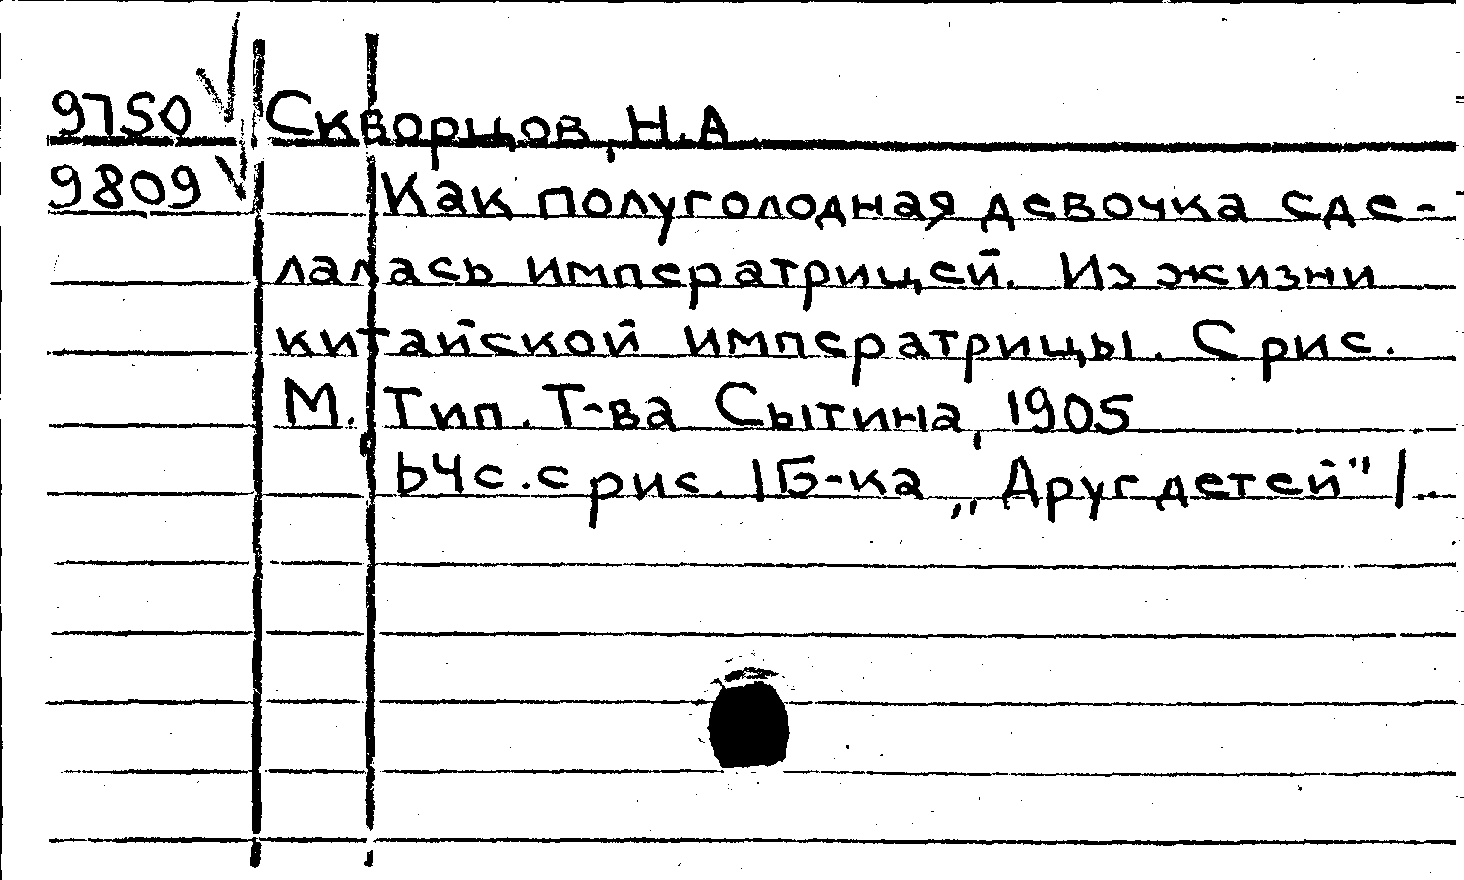 9750 Скворцов, Н.А.
9809 Как полуголодная девочка сде-
лалась императрицей. Из жизни
китайской императрицы. С рис.
М. Тип. Т-ва Сытина, 1905
64с. с рис. /Б-ка „Друг детей"/.